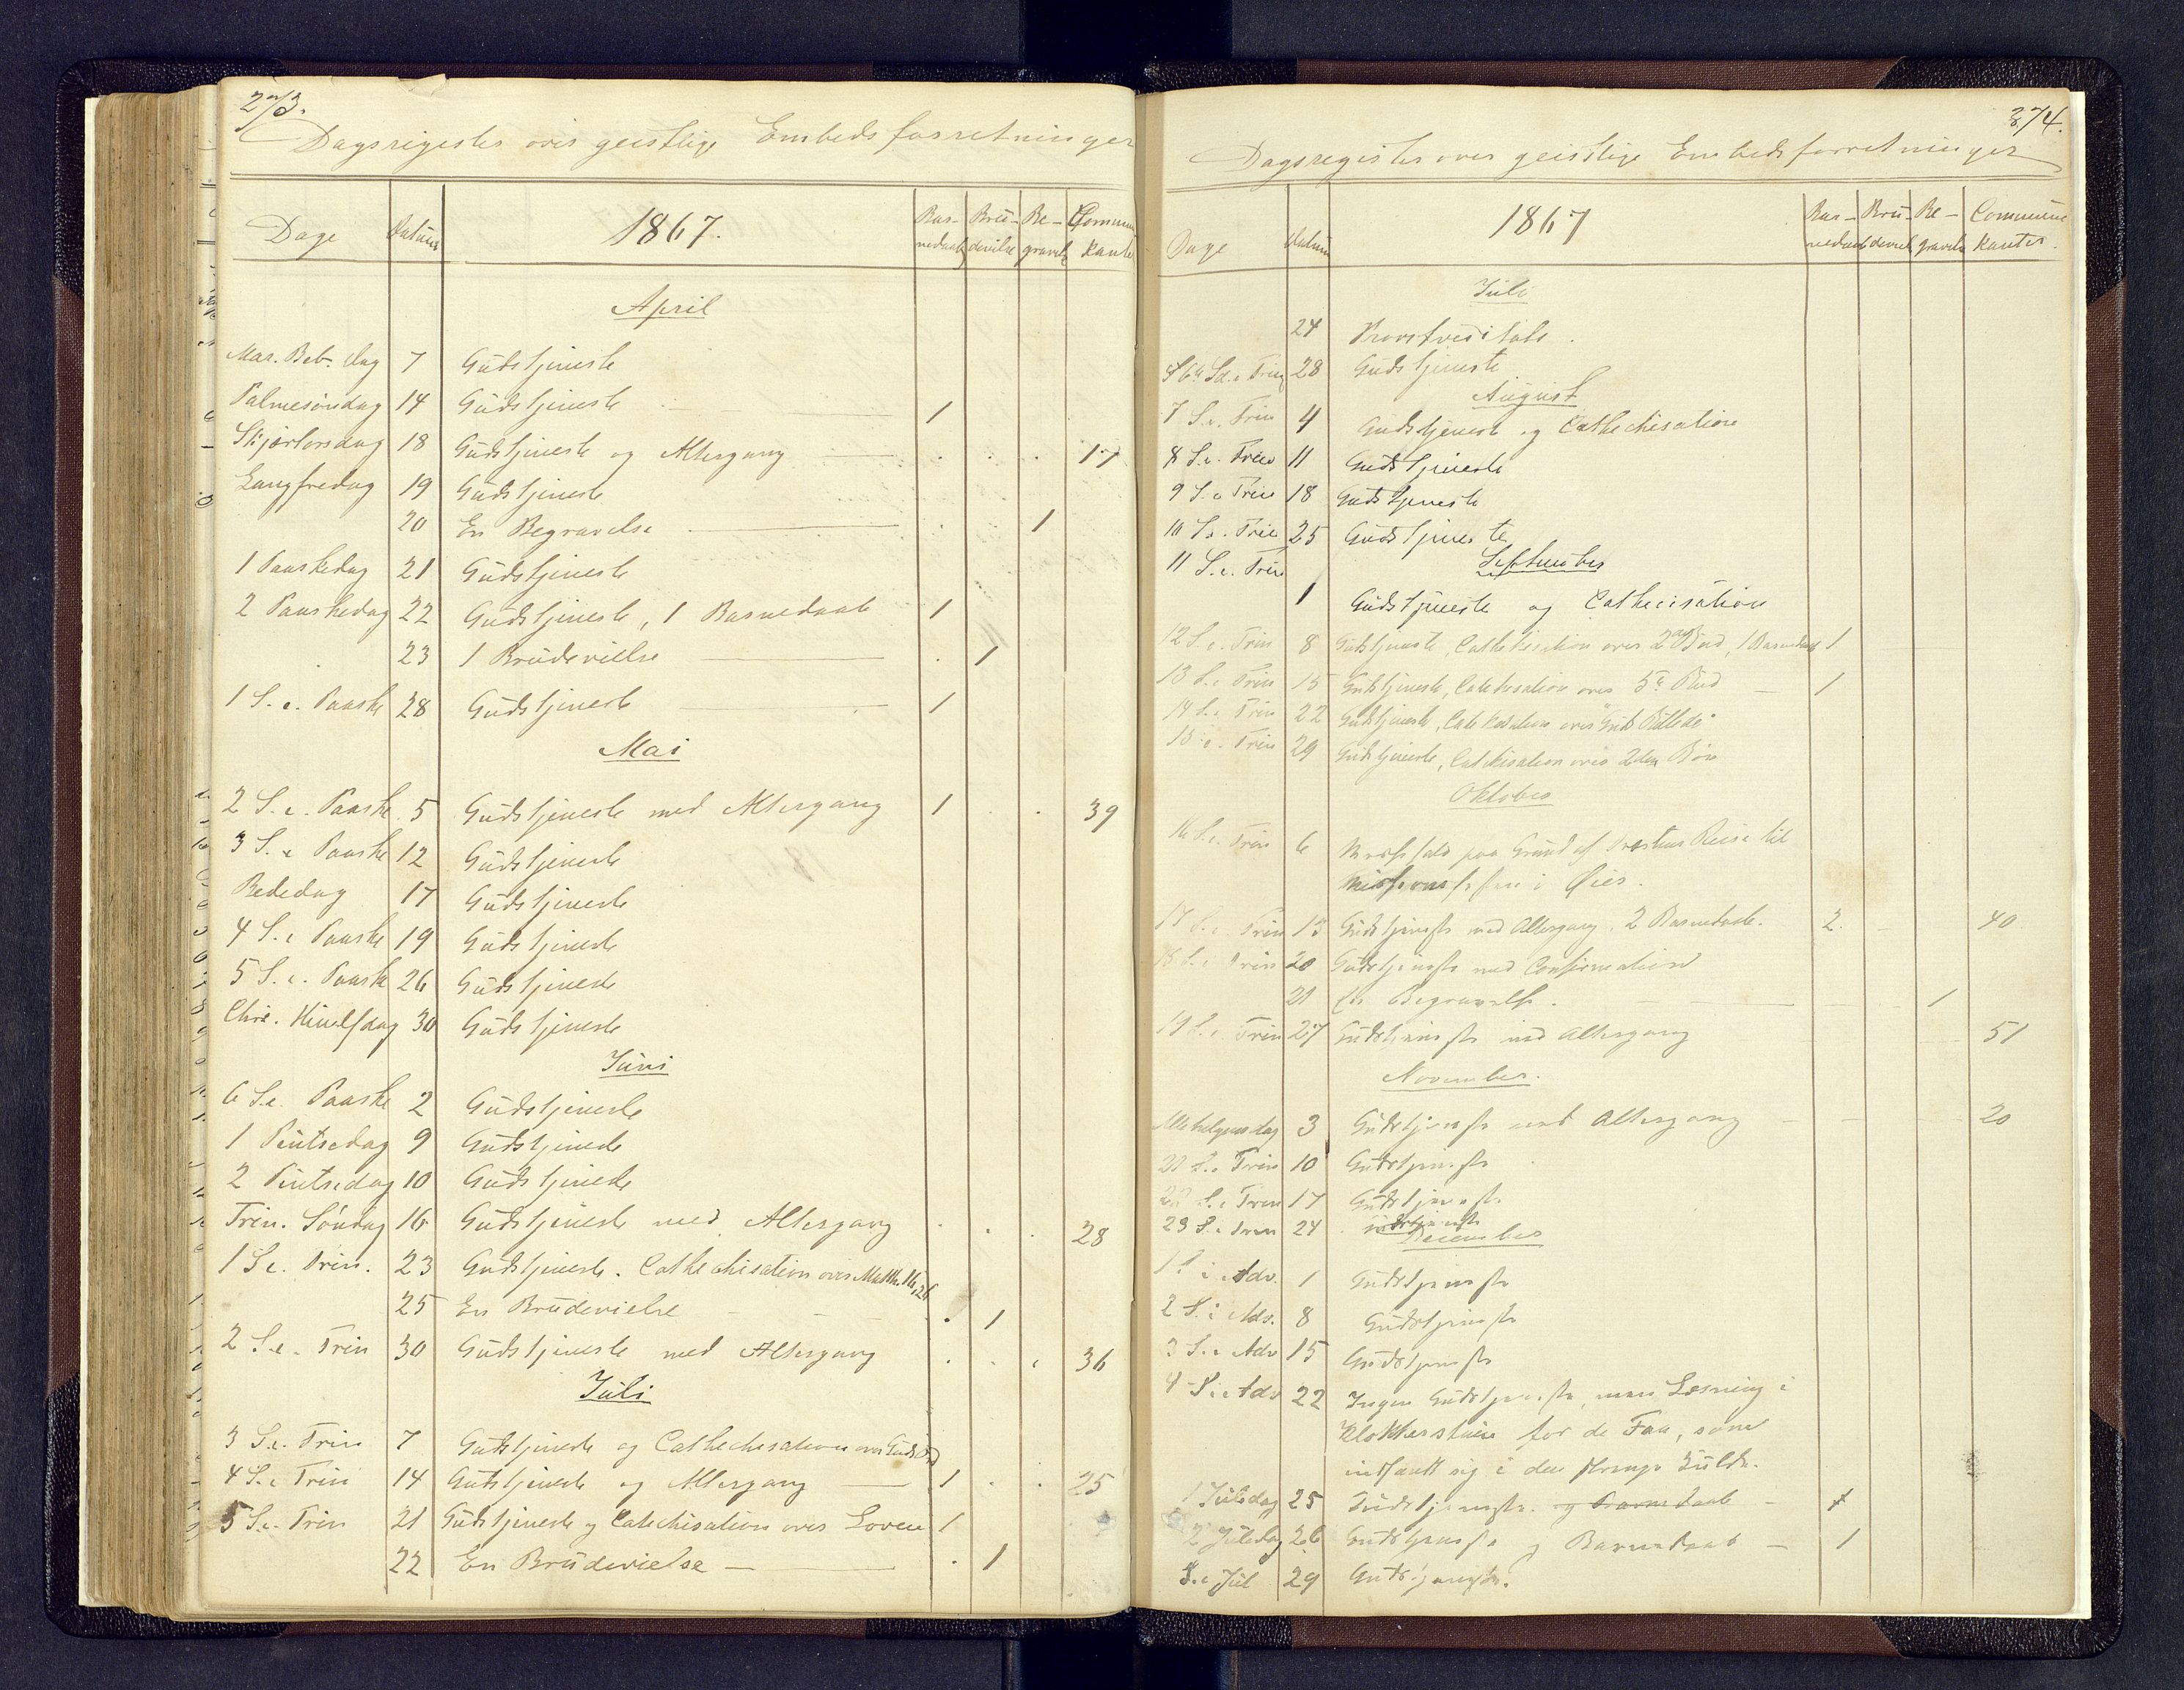 273.
Dagsregister over geistlige Embedsforretninger
Dage Datum 1867. Bar- Brü- Be- Commun
nedaab devielse gravelse kanter
April
Mar. Beb. dag 7 Gudstjeneste
Palmesøndag 14 Gudstjeneste 1
Skjærtorsdag 18 Gudstjeneste og Altergang 17
Langfredag 19 Gudstjeneste
20 En Begravelse 1
1 Paaskedag 21 Gudstjeneste
2 Paaskedag 22 Gudstjeneste, 1 Barnedaab 1
23 1 Brüdevielse 1
1 S. e. Paaske 28 Gudstjeneste 1
Mai
2 S. e. Paaske 5 Gudstjeneste med Altergang 1 39
3 S. e Paaske 12 Gudstjeneste
Bededag 17 Gudstjeneste
4 S. e Paaske 19 Gudstjeneste
5 S. e. Paaske 26 Gudstjeneste
Chri. Himelfdag 30 Gudstjeneste
Juni
6 S.e. Paaske 2 Gudstjeneste
1 Pintsedag 9 Gudstjeneste
2 Pintsedag 10 Gudstjeneste
Trin. Søndag 16 Gudstjeneste med Altergang 28
1 S e. Trin. 23 Gudstjeneste. Cathechisation over Matth. 16,26
25 En Brüdevielse 1
2 S.e. Trin 30 Gudstjeneste med Altergang 36
Juli
3 S.e. Trin 7 Gudstjeneste og Cathechisation over Guds Ord
4 S.e Trin 14 Gudstjeneste og Altergang 1 25
5 S.e. Trin 21 Gudstjeneste og Catechisation over Loven 1
22 En Brüdevielse 1
374.
Dagsregister over geistlige Embedsforretninger
Dage Datum 1867 Bar- Brü- Be- Commune
nedaab deviel gravelse kanter.
Juli
24 Provstvisitats.
6te Sd. e Trin 28 Gudstjeneste
August
7 S.e. Trin 4 Gudstjeneste og Cathechisation
8 S.e. Trin 11 Gudstjeneste
9 S.e Trin 18 Gudstjeneste
10 S.e. Trin 25 Gudstjeneste
September
11 S.e. Trin
1 Gudstjeneste og Cathecisation
12 S.e. Trin 8 Gudstjeneste, Cathekisation over 2det Bud, 1 Barnedaab 1
13 S.e Trin 15 Gudstjeneste, Catekisation over 5te Bud 1
14 S.e Trin 22 Gudstjeneste, Catekisation over "Guds Billede"
15 e. Trin 29 Gudstjeneste, Catekisation over 2den Bøn
Oktober
16 S.e. Trin 6 Messefald paa Grund af Præstens Reise til
Missionsfesten i Øier.
17 S.e Trin 13 Gudstjeneste med Altergang. 2 Barnedaab. 2. 40
18 S.e Trin 20 Gudstjeneste med Confirmation
21 En Begravelse. 1
19 S.e Trin 27 Gudstjeneste med Altergang 51
November.
Allehelgensdag 3 Gudstjeneste med Altergang 20
21 S.e Trin 10 Gudstjeneste
22 S.e Trin 17 Gudstjeneste
23 S.e Trin 24 Gudstjeneste
December
1 S i Adv. 1 Gudstjeneste
2 S. i Adv. 8 Gudstjeneste
3 S. i Adv 15 Gudstjeneste
4 S. i Adv 22 Ingen Gudstjeneste, men Læsning i
Klokkerstuen for de Faa, som
indfandt sig i den strenge Kulde.
1 Juledag 25 Gudstjeneste. og Barnedaab 1
2 Juledag 26 Gudstjeneste og Barnedaab 1
S.e Jul 29 Gudstjeneste.